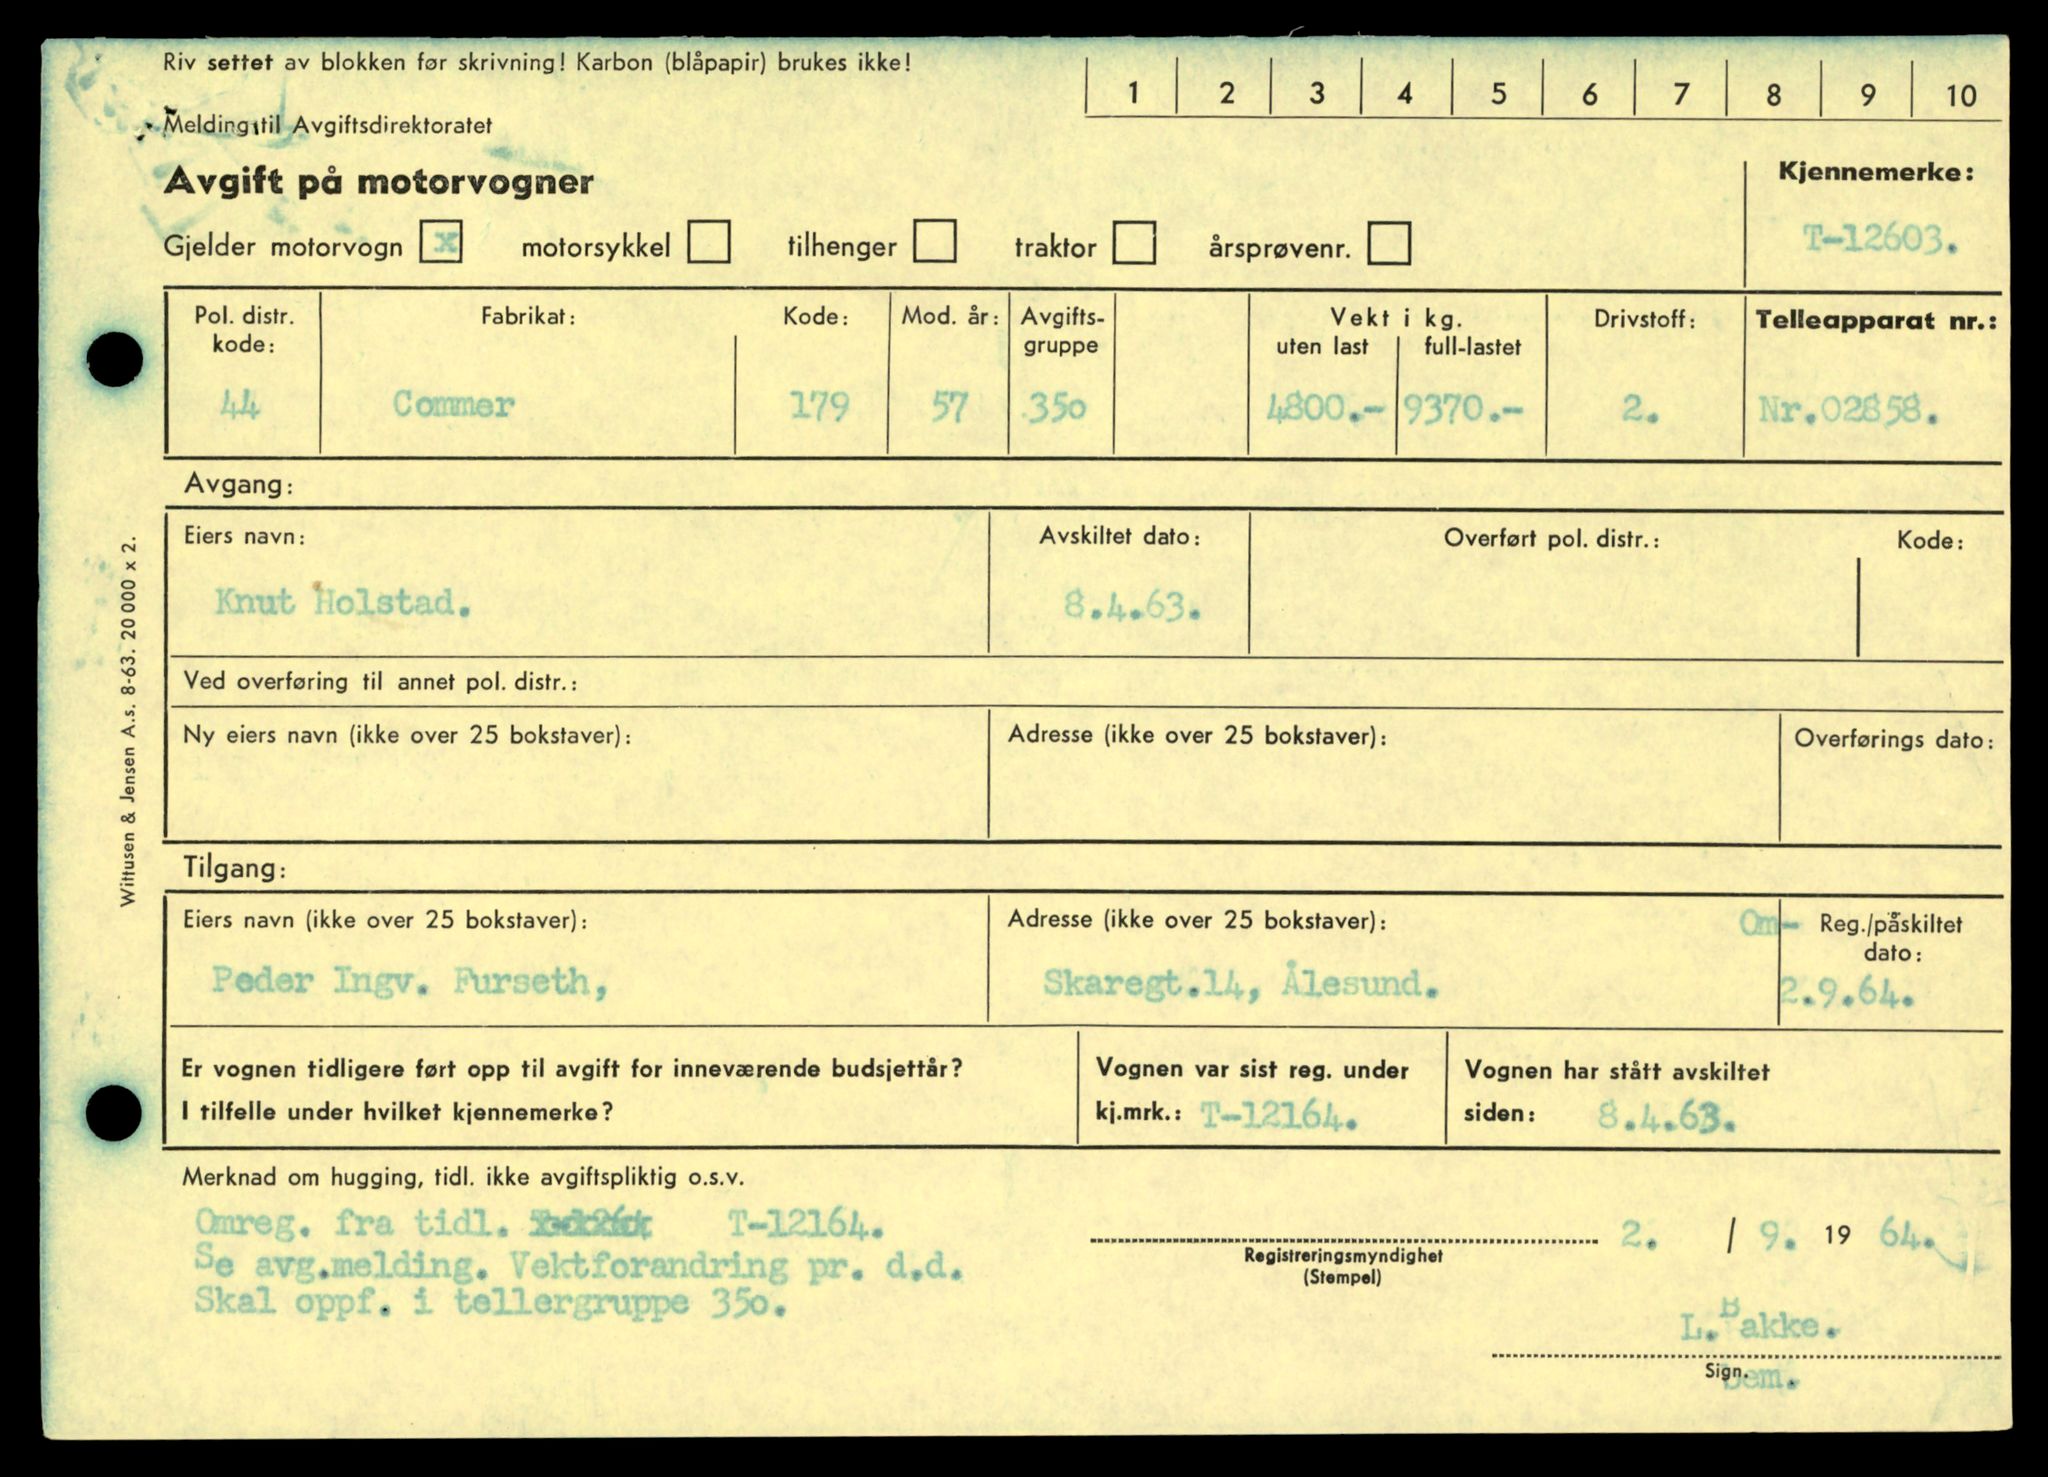 Riv settet av blokken før skrivning! Karbon (blåpapir) brukes ikke!
1 2 3 4 5 6 7 8 9 10
Melding til Avgiftsdirektoratet
Avgift på motorvogner
Kjennemerke:
T-12603.
Gjelder motorvogn x motorsykkel tilhenger traktor årsprøvenr.
Pol. distr. kode: Fabrikat: Kode: Mod. år: Avgifts-gruppe Vekt i kg. uten last full-lastet Drivstoff: Telleapparat nr.:
44 Commer 179 57 350 4800.- 9370.- 2. Nr.02858.
Avgang:
Eiers navn: Avskiltet dato: Overført pol. distr.: Kode:
Knut Holstad. 8.4.63.
Ved overføring til annet pol. distr.:
Ny eiers navn (ikke over 25 bokstaver): Adresse (ikke over 25 bokstaver): Overførings dato:
Tilgang:
Eiers navn (ikke over 25 bokstaver): Adresse (ikke over 25 bokstaver): Om- Reg./påskiltet dato:
Peder Ingv. Furseth, Skaregt.14, Ålesund. 2.9.64.
Er vognen tidligere ført opp til avgift for inneværende budsjettår? Vognen var sist reg. under Vognen har stått avskiltet
I tilfelle under hvilket kjennemerke? kj.mrk.: T-12164. siden: 8.4.63.
Merknad om hugging, tidl. ikke avgiftspliktig o.s.v.
Omreg. fra tidl. T-12164.
2. / 9. 19 64.
Se avg.melding. Vektforandring pr. d.d.
Registreringsmyndighet
(Stempel)
Skal oppf. i tellergruppe 350.
L.Bakke.
Sign.
Wittusen & Jensen A.s. 8-63. 20 000 x 2.